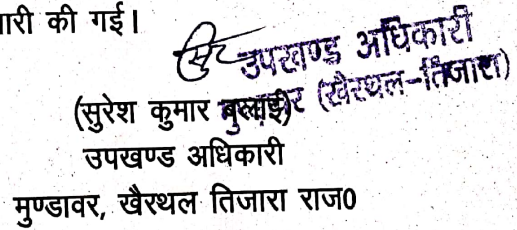 ारी की गई।
उपखण्ड अधिकारी
(खैरथल-तिजारा)
(सुरेश कुमार बुलाई)
उपखण्ड अधिकारी
मुण्डावर, खैरथल तिजारा राज0